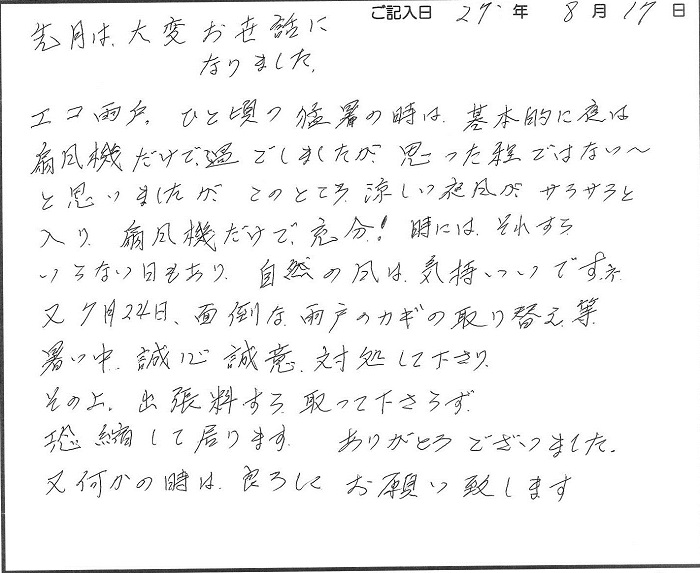 ご記入日 27年 8月 17日
先月は、大変お世話に
なりました。
エコ雨戸、ひと頃の猛暑の時は、基本的に夜は
扇風機だけで、過ごしましたが、思った程ではない〜
と思いましたが、このところ、涼しい夜風が、サラサラと
入り、扇風機だけで、充分! 時には、それすら
いらない日もあり、自然の風は、気持いいですネ
又7月24日、面倒な、雨戸のカギの取り替え、等
暑い中、誠心誠意、対処して下さり、
その上、出張料すら、取って下さらず、
恐縮して居ります。 ありがとうございました。
又何かの時は、良ろしくお願い致します